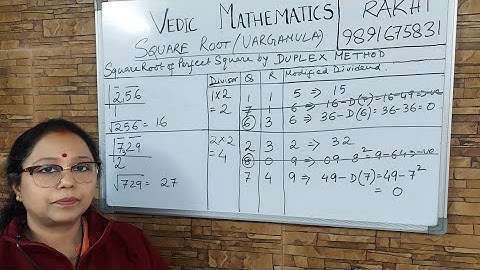 VEDIC MATHEMATICS
RAKHI
SQUARE ROOT (VARGAMULA)
9891675831
Square Root of Perfect Square by DUPLEX METHOD
Divisor Q R Modified Dividend.
256 1×2 1 1 5 ⇒ 15
1 = 2 7 1 6 ⇒ 16-D(7)=16-49 ⇒ -ve
√256 = 16 6 3 6 ⇒ 36-D(6)=36-36=0
729 2×2 2 3 2 ⇒ 32
2 = 4 8 0 9 ⇒ 09-8²=9-64 ⇒ -ve
√729 = 27 7 4 9 ⇒ 49-D(7)=49-7²
= 0